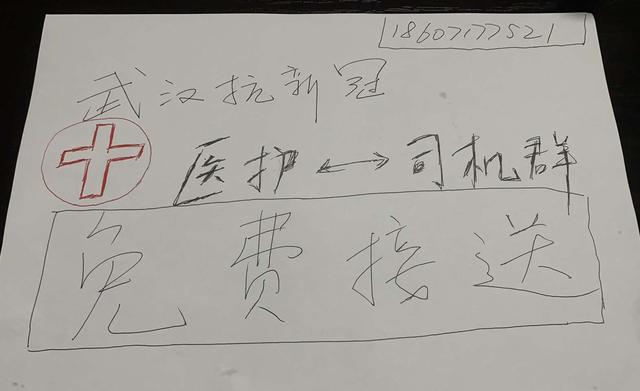 18607177521
武汉抗新冠
医护↔司机群
免费接送